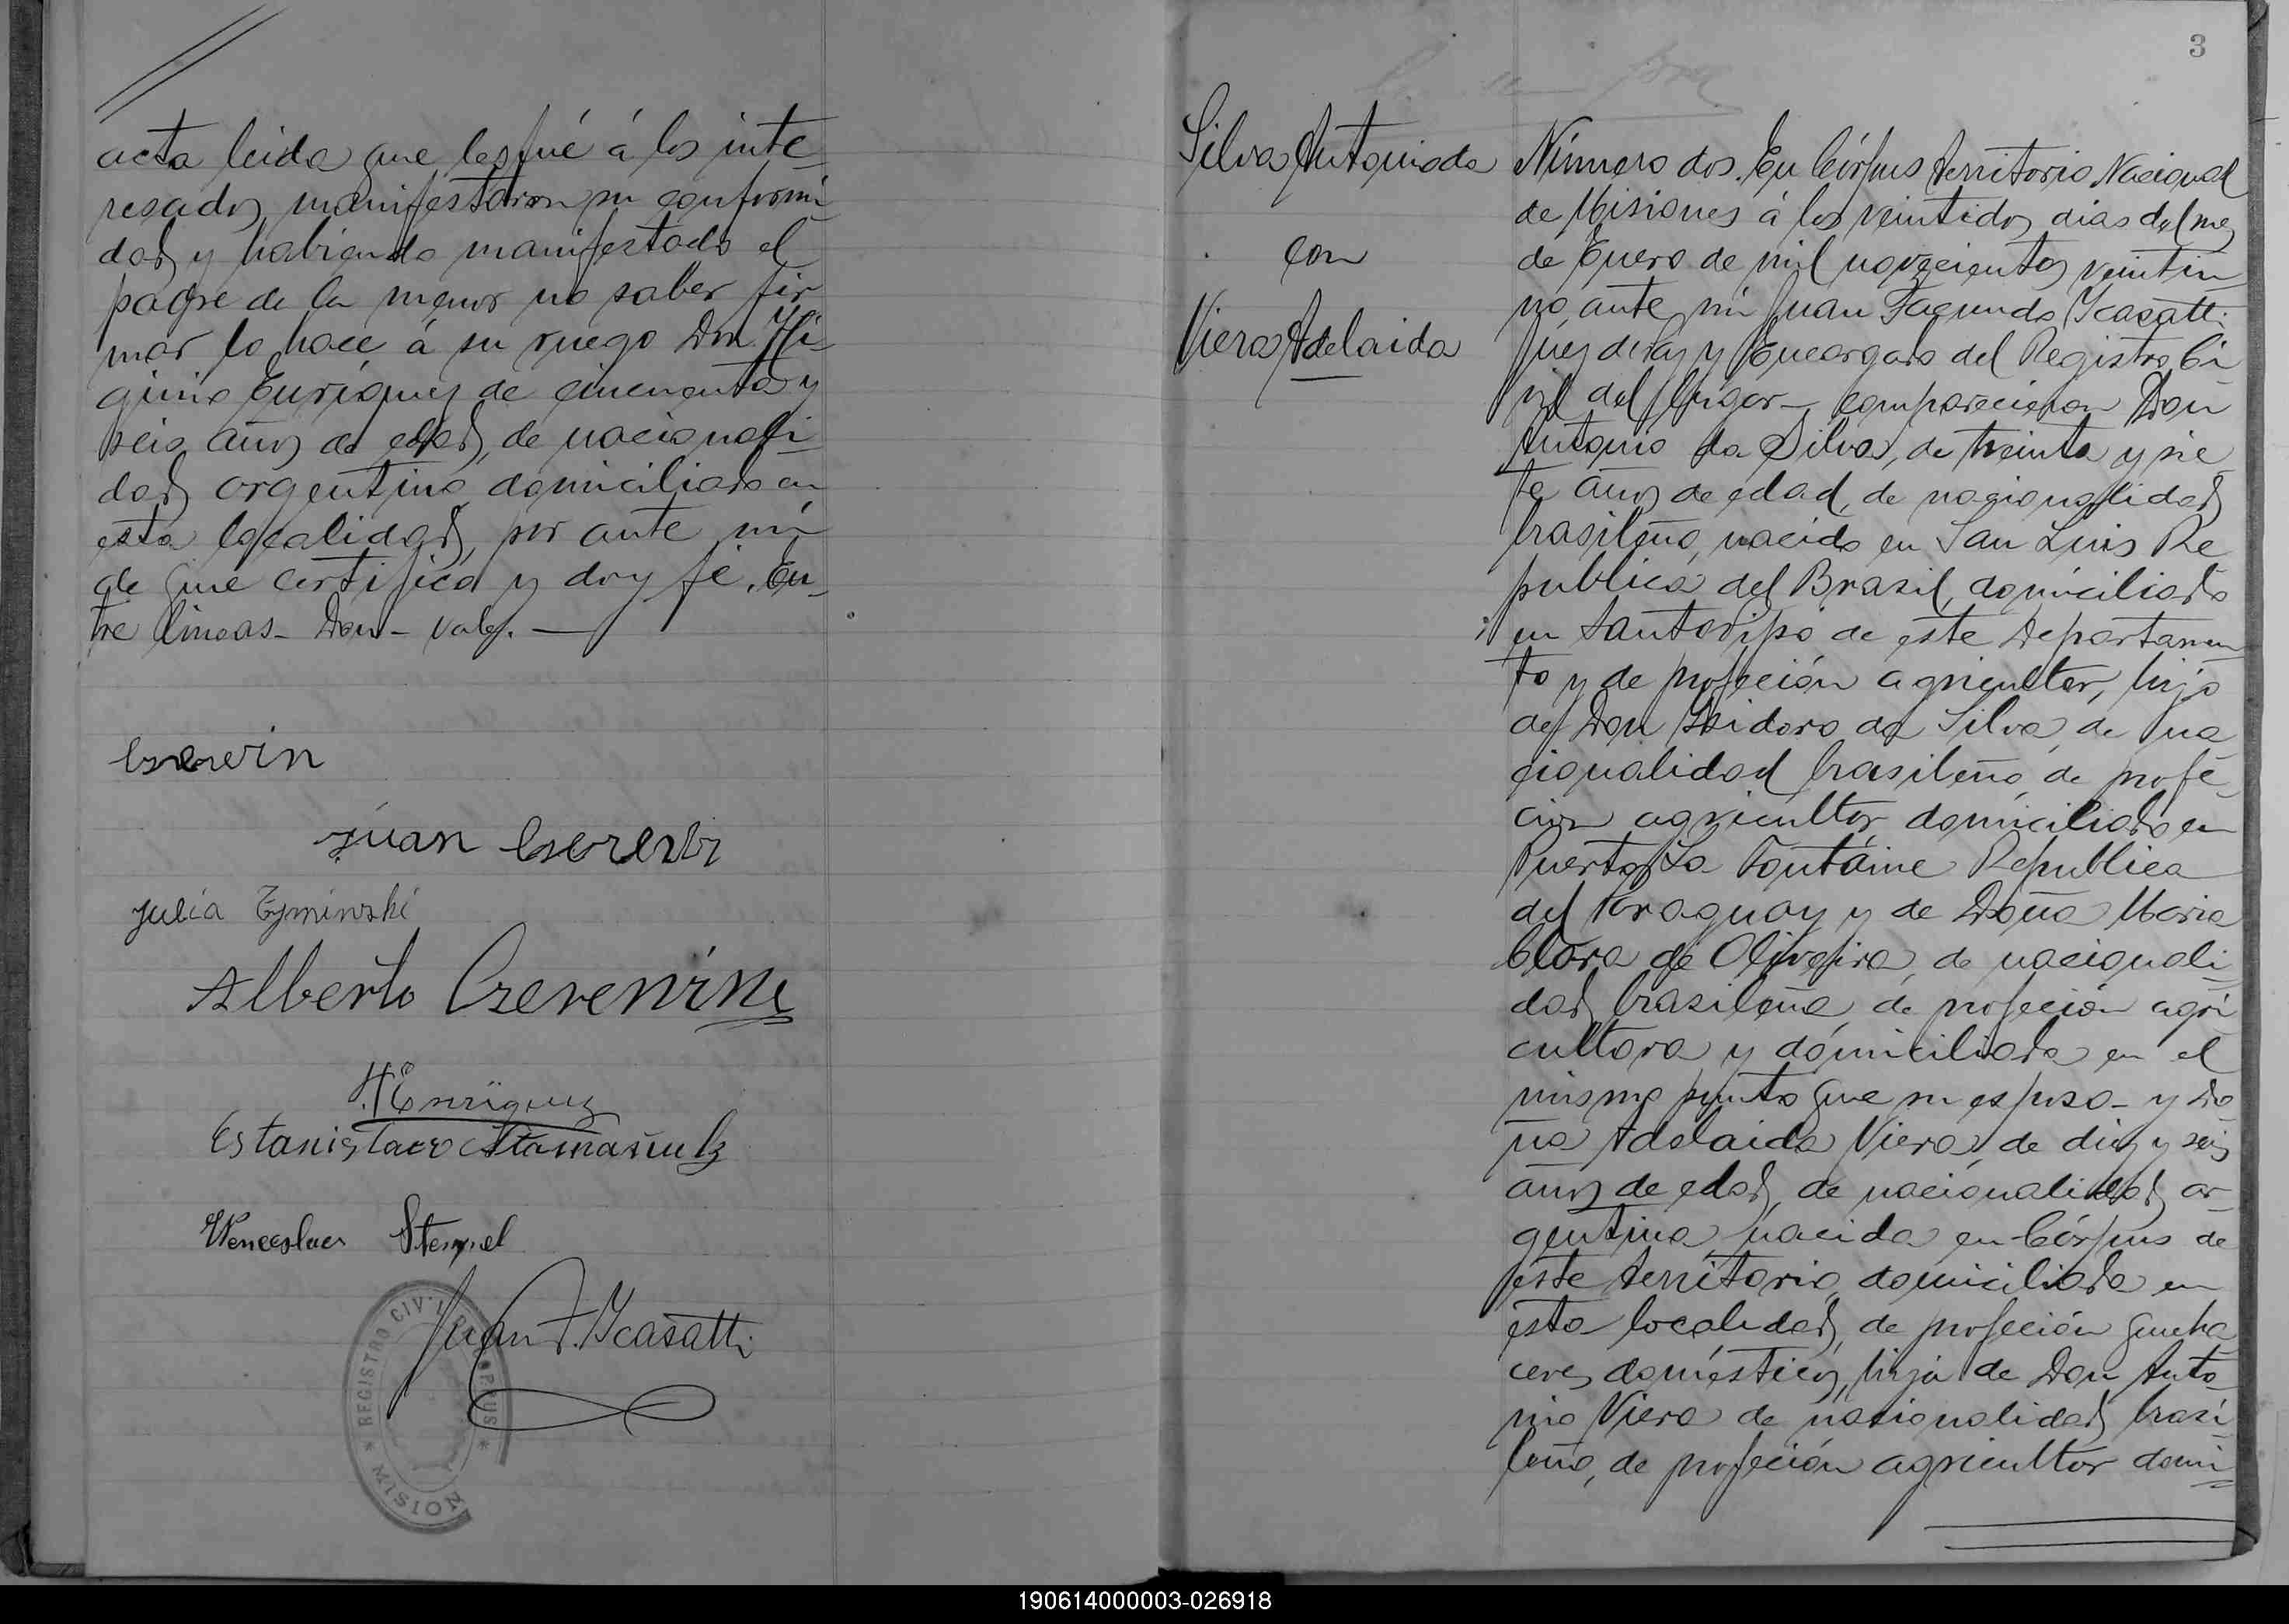 acta leida que les fué á los inte
resados, manifestaron su conformi
dad y habiendo manifestado el
padre de la menor no saber fir
mar lo hace á su ruego Don Hi-
ginio Enriquez de cincuenta y
seis años de edad, de nacionali
dad argentino domiciliado en
esta localidad, por ante mi
de que certifico y doy fé. En-
tre lineas - Don - vale. —
Juan
Julia Tyminski
Alberto
H. Enriquez
Estanislao
Wenceslao Stempel
Juan F. Ycasatti
REGISTRO CIVIL DE CORPUS * MISION
3
Silva Antonio da
con
Viera Adelaida
Número dos. En Córpus Territorio Nacional
de Misiones á los veintidos dias del mes
de Enero de mil novecientos veintiu
no, ante mi Juan Facundo Ycasatti
Juez de Paz y Encargado del Registro Ci
vil del lugar - comparecieron Don
Antonio da Silva, de treinta y sie
te años de edad, de nacionalidad
brasileño, nacido en San Luis Re
publica del Brasil, domiciliado
en Santo Pipó de este Departamen
to y de profeción agricultor, hijo
de Don Isidoro da Silva, de na
cionalidad brasileño, de profe
cion agricultor domiciliado en
Puerto La Fontaine Republica
del Paraguay y de Doña Maria
Clara de Oliveira, de nacionali
dad brasileña, de profeción agri
cultora y domiciliada en el
mismo punto que su esposo - y Do
ña Adelaida Viera, de diez y seis
años de edad, de nacionalidad ar
gentina nacida en Córpus de
éste Territorio, domiciliada en
esta localidad, de profeción queha
ceres domésticos, hija de Don Anto
nio Viera de nacionalidad brasi
leño, de profeción agricultor domi
190614000003-026918